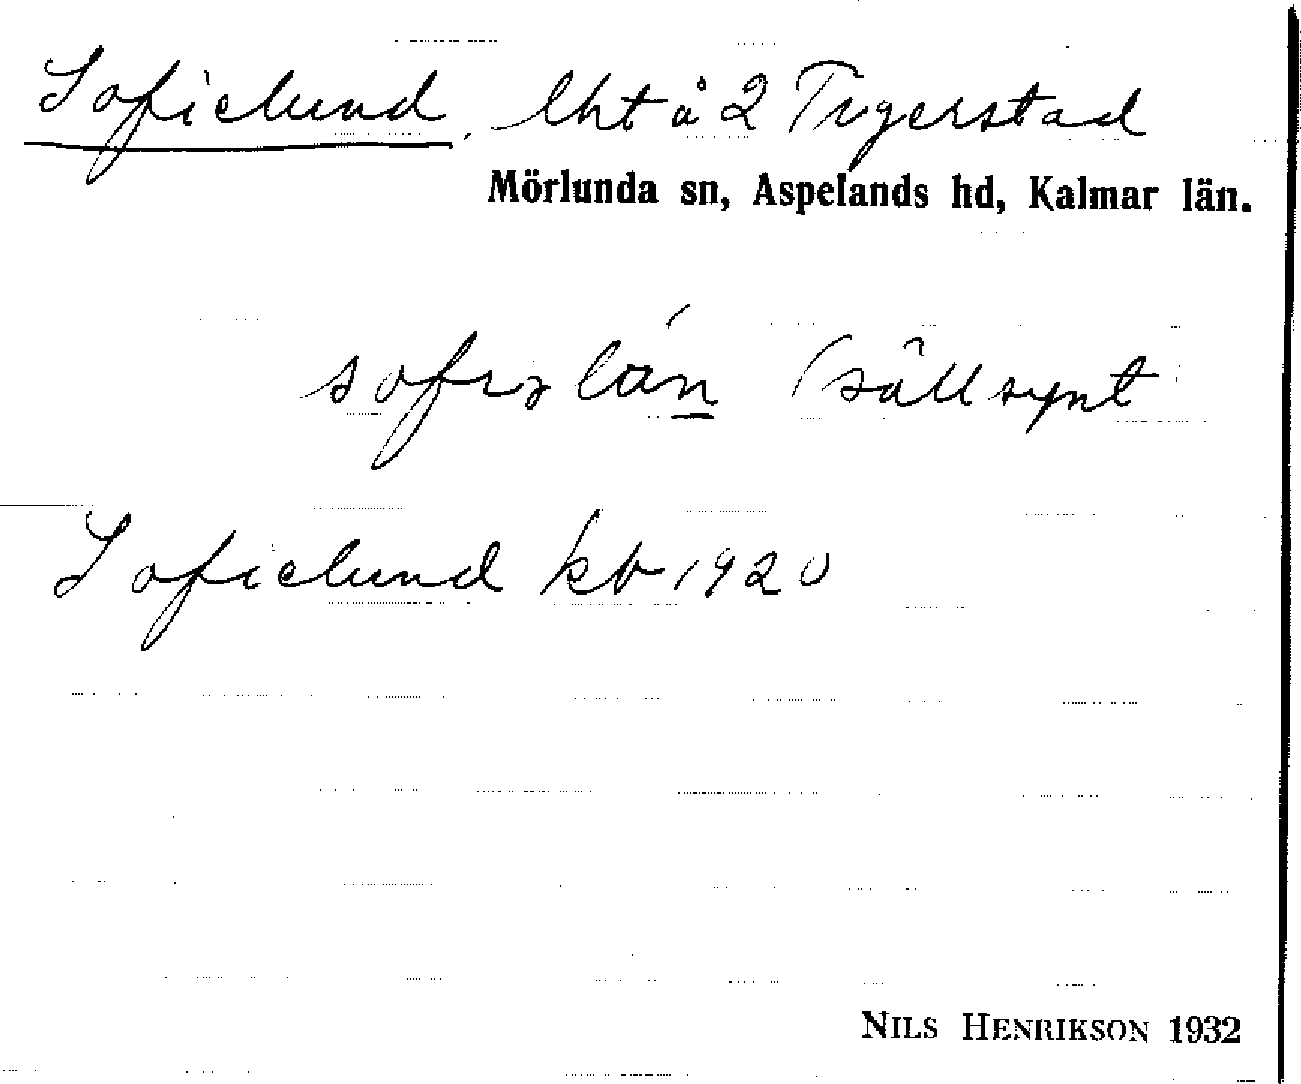 Sofielund, lht å 2 Tigerstad
Mörlunda sn, Aspelands hd, Kalmar län.
(sällsynt
Sofielund kb 1920
NILS HENRIKSON 1932